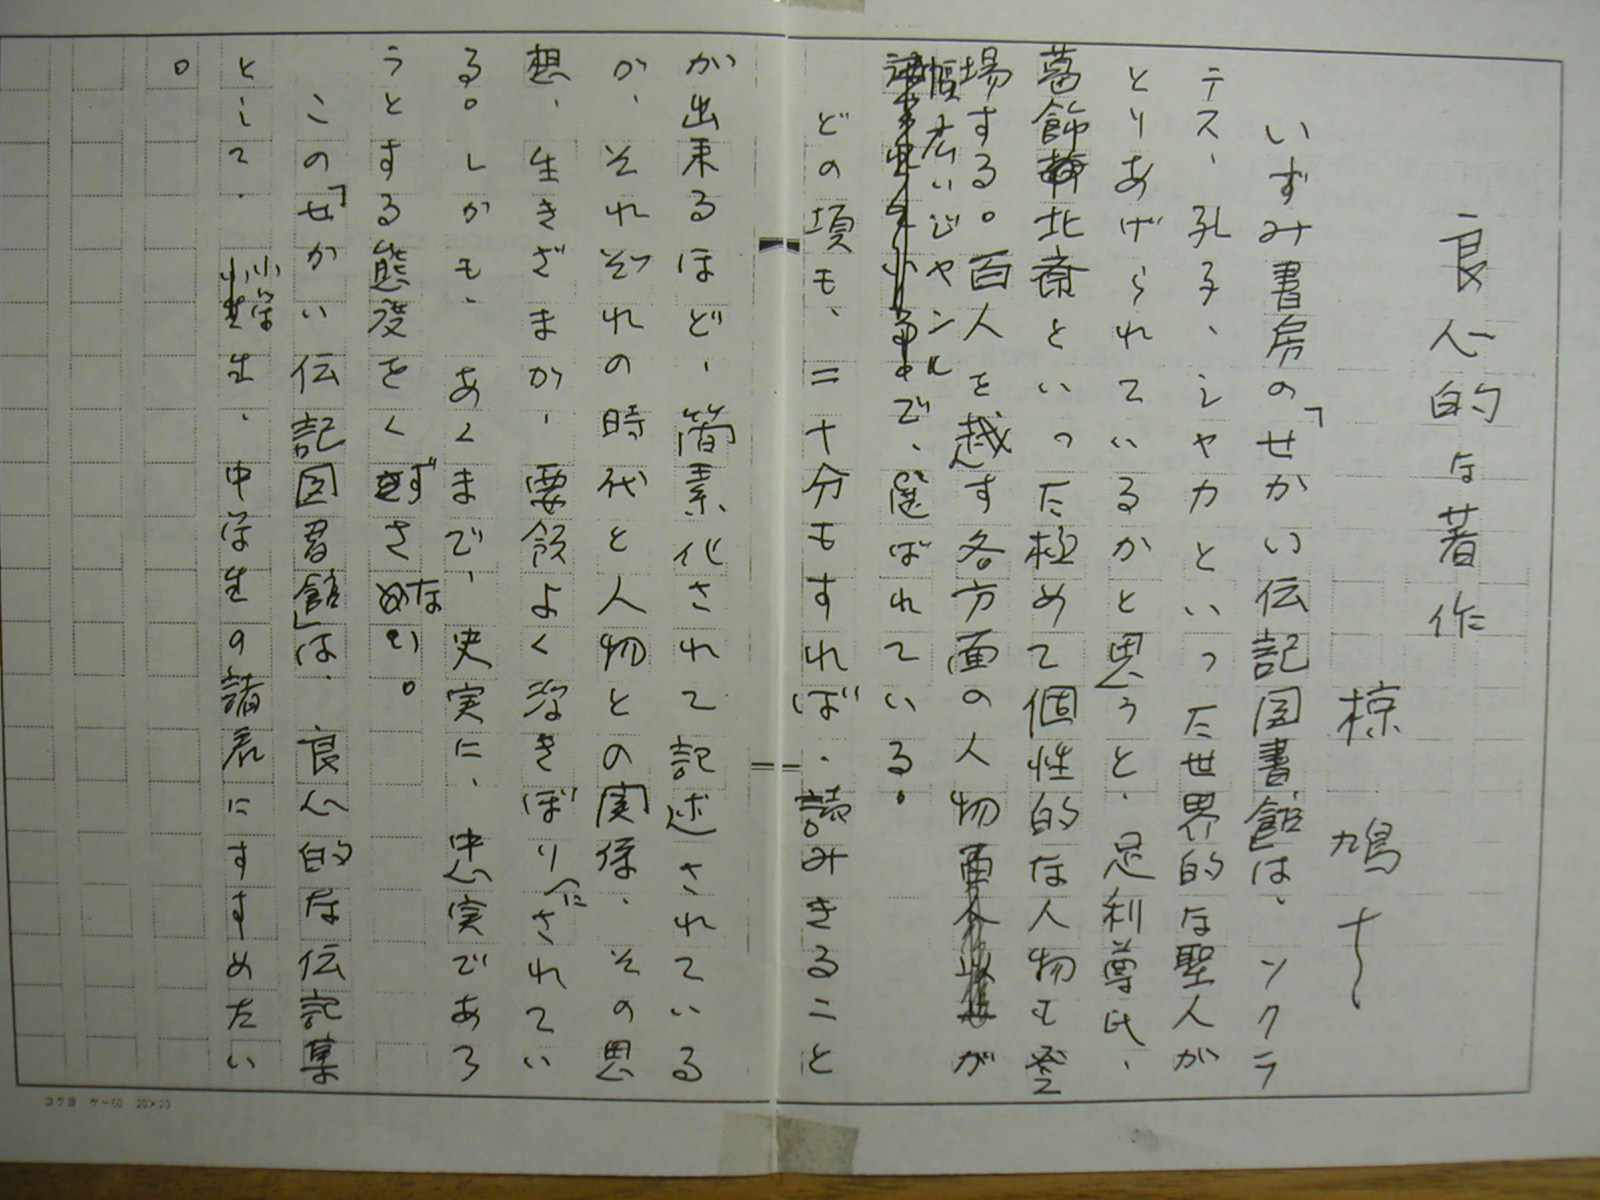 良心的な著作
椋鳩十
いずみ書房の「せかい伝記図書館」は、ソクラ
テス、孔子、シャカといった世界的な聖人が
とりあげられているかと思うと、足利尊氏、
葛飾北斎といった極めて個性的な人物も登
場する。百人を越す各方面の人物が
幅広いジャンル
で、選ばれている。
どの項も、二十分もすれば、読みきること
が出来るほど、簡素化されて記述されている
が、それぞれの時代と人物との関係、その思
想、生きざまが、要領よく浮きぼりにされてい
る。しかも、あくまで、史実に、忠実であろ
うとする態度をくずさない。
この「せかい伝記図書館」は、良心的な伝記集
として、小学生、中学生の諸君にすすめたい
。
コクヨ ケー60 20×20